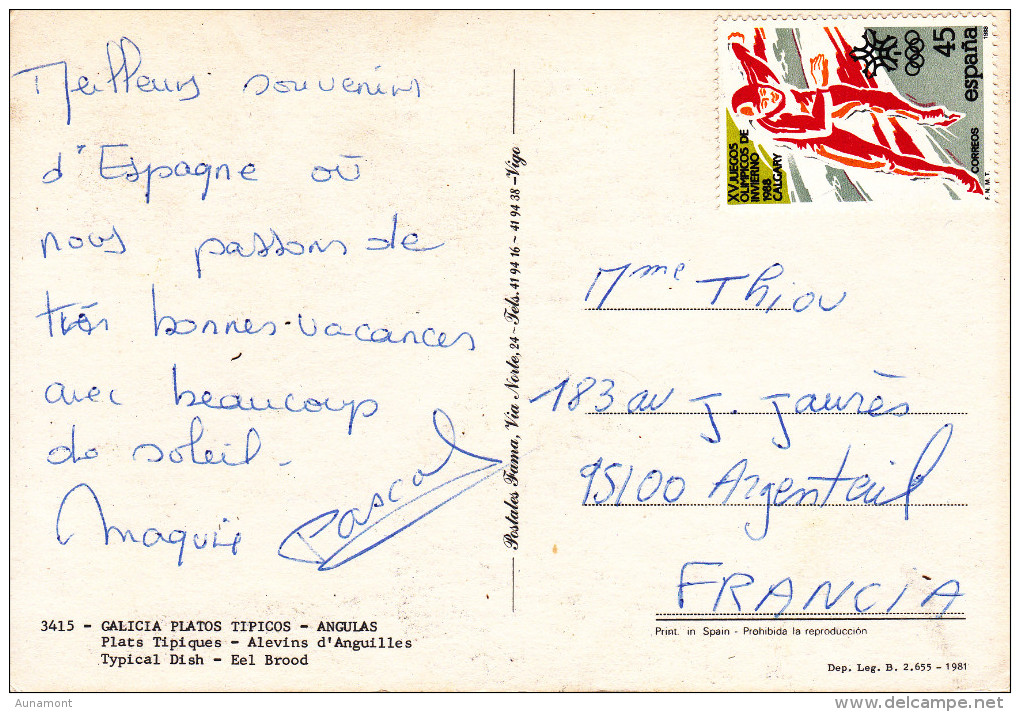 Meilleurs souvenirs
d'Espagne où
nous passons de
très bonnes vacances
avec beaucoup
de soleil.
Pascal
3415 - GALICIA PLATOS TIPICOS - ANGULAS
Plats Tipiques - Alevins d'Anguilles
Typical Dish - Eel Brood
Postales Fama, Via Norte, 24 - Tels. 41 94 16 - 41 94 38 - Vigo
XV JUEGOS
OLIMPICOS DE
INVIERNO
1988
CALGARY
45
españa
1988
CORREOS
F.N.M.T.
Mme Thiou
183 av J. Jaurès
95100 Argenteuil
FRANCIA
Print. in Spain - Prohibida la reproducción
Dep. Leg. B. 2.655 - 1981
Aunamont
delcampe.net